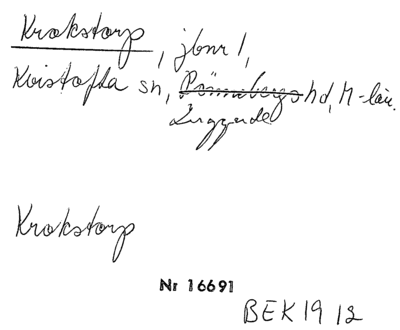 Krokstorp, jbnr 1,
Kvistofta sn, Rönnebergs hd, M-län.
Luggude
Krokstorp
Nr 16691
BEK 1912